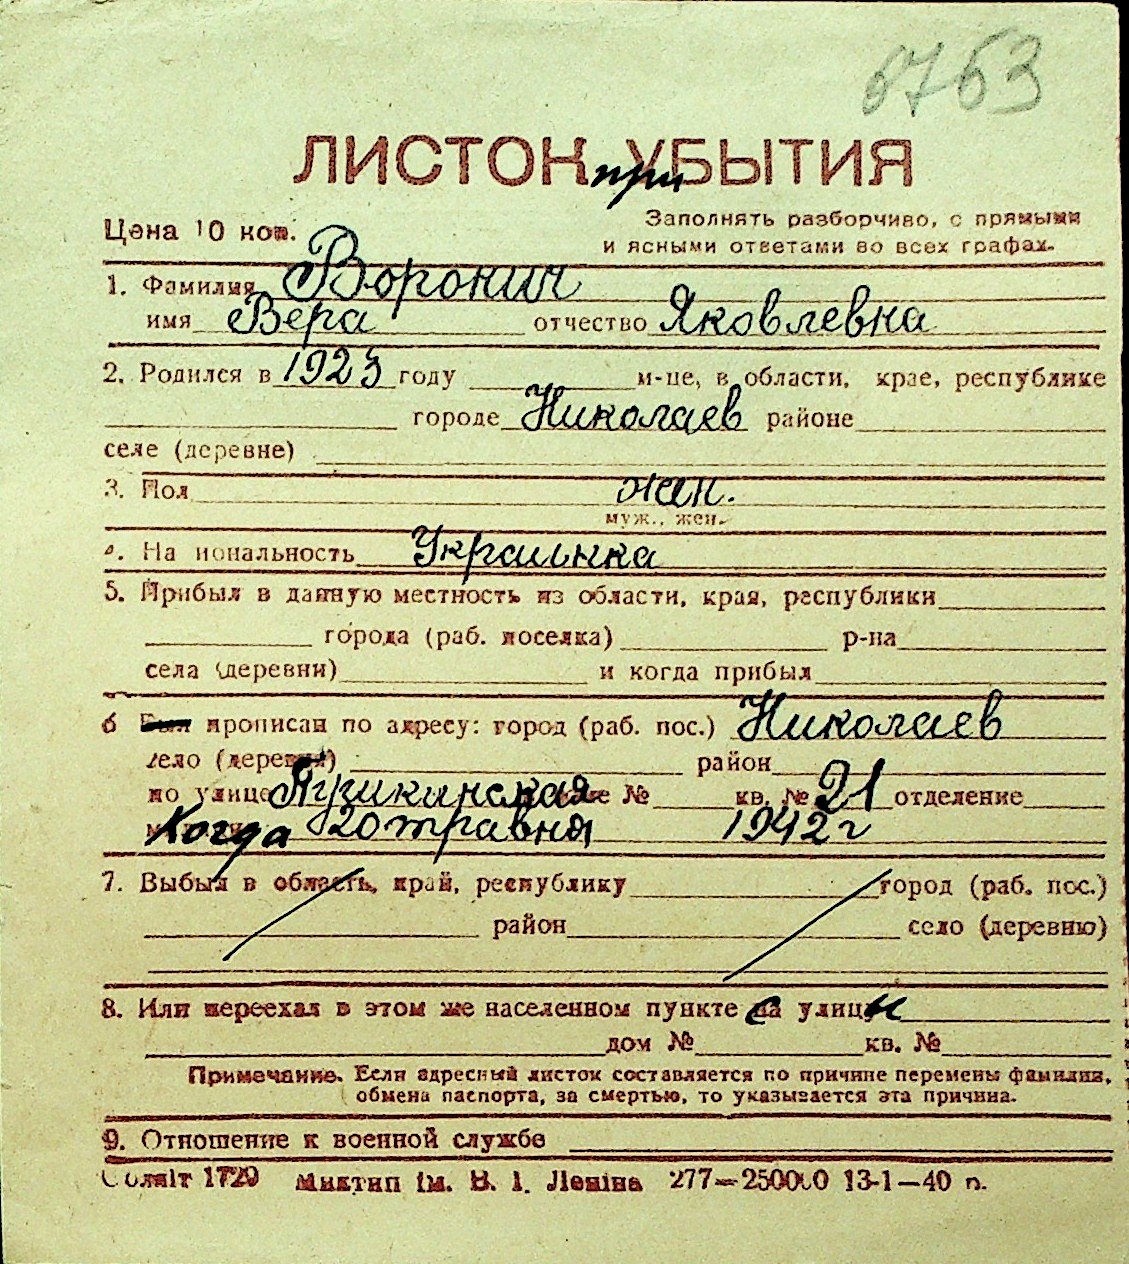 6763
ЛИСТОК при УБЫТИЯ
Цена 10 коп.
Заполнять разборчиво, с прямыми
и ясными ответами во всех графах.
1. Фамилия Воронич
имя Вера отчество Яковлевна
2. Родился в 1923 году м-це, в области, крае, республике
городе Николаев районе
селе (деревне)
3. Пол жен.
муж., жен.
4. На иональность Украинка
5. Прибыл в данную местность из области, края, республики
города (раб. поселка) р-на
села (деревни) и когда прибыл
6 Был прописан по адресу: город (раб. пос.) Николаев
село (деревня) район
по улице Пушкинская № кв. № 21 отделение
Когда 20 травня 1942 г
7. Выбыл в область, край, республику город (раб. пос.)
район село (деревню)
8. Или переехал в этом же населенном пункте с улицы
дом № кв. №
Примечание. Если адресный листок составляется по причине перемены фамилии,
обмена паспорта, за смертью, то указывается эта причина.
9. Отношение к военной службе
Облліт 1729 Миктип ім. В. І. Леніна 277—250000 13-1—40 п.